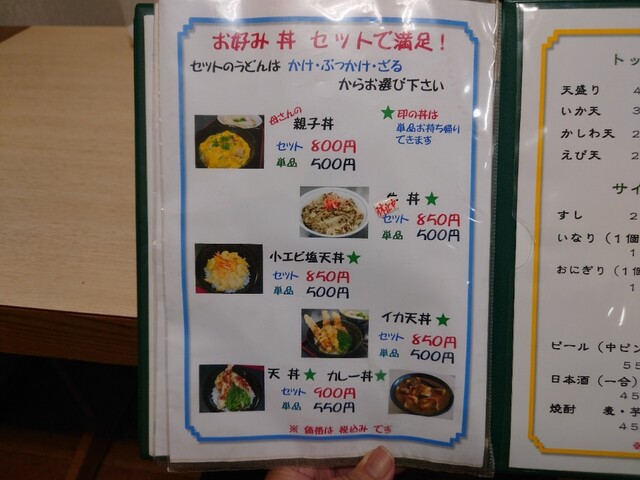 お好み 丼 セットで満足!
セットのうどんは かけ・ぶっかけ・ざる
からお選び下さい
母さんの
親子丼
セット 800円
単品 500円
★印の丼は
単品お持ち帰り
できます
丼★
セット 850円
単品 500円
小エビ塩天丼★
セット 850円
単品 500円
イカ天丼★
セット 850円
単品 500円
天 丼★ カレー丼★
セット 900円
単品 550円
※ 価格は 税込み です
トッ
天盛り 4
いか天 3
かしわ天 2
えび天 2
サイ
すし 2
いなり(1個
1
おにぎり(1個
1
ビール(中ビン
55
日本酒(一合)
45
焼酎 麦・芋
45